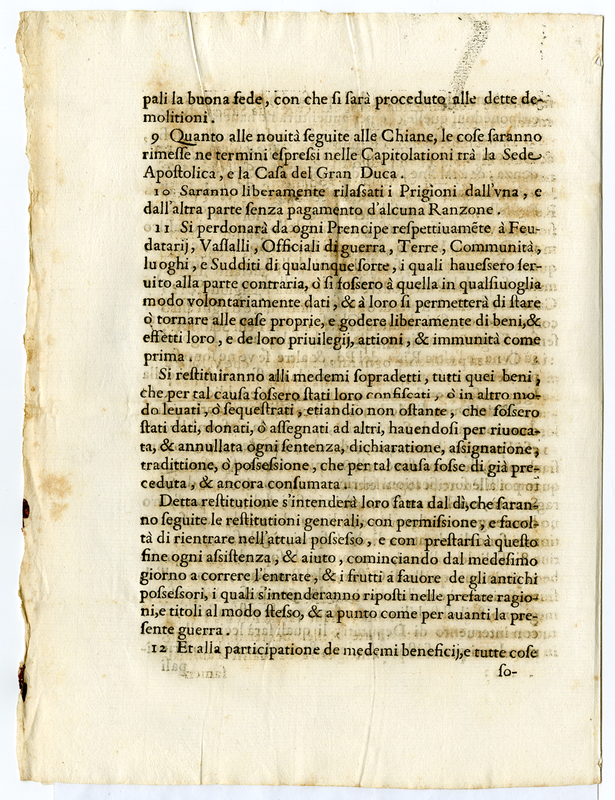 pali la buona fede, con che ſi ſarà proceduto alle dette de-
molitioni.
9 Quanto alle nouità ſeguite alle Chiane, le coſe ſaranno
rimeſſe ne termini eſpreſsi nelle Capitolationi trà la Sede
Apoſtolica, e la Caſa del Gran Duca.
10 Saranno liberamente rilaſsati i Prigioni dall'vna, e
dall'altra parte ſenza pagamento d'alcuna Ranzone.
11 Si perdonarà da ogni Prencipe reſpettiuamẽte à Feu-
datarij, Vaſſalli, Officiali di guerra, Terre, Communità,
luoghi, e Sudditi di qualunque ſorte, i quali haueſsero ſer-
uito alla parte contraria, ò ſi foſsero à quella in qualſiuoglia
modo volontariamente dati, & à loro ſi permetterà di ſtare
ò tornare alle caſe proprie, e godere liberamente di beni, &
effetti loro, e de loro priuilegij, attioni, & immunità come
prima.
Si reſtituiranno alli medemi ſopradetti, tutti quei beni,
che per tal cauſa foſsero ſtati loro confiſcati, ò in altro mo-
do leuati, ò ſequeſtrati, etiandio non oſtante, che foſsero
ſtati dati, donati, ò aſſegnati ad altri, hauendoſi per riuoca-
ta, & annullata ogni ſentenza, dichiaratione, aſſignatione,
tradittione, ò poſseſſione, che per tal cauſa foſse di già pre-
ceduta, & ancora conſumata.
Detta reſtitutione s'intenderà loro fatta dal dì, che ſaran-
no ſeguite le reſtitutioni generali, con permiſſione, e facol-
tà di rientrare nell'attual poſseſso, e con preſtarſi à queſto
fine ogni aſſiſtenza, & aiuto, cominciando dal medeſimo
giorno a correre l'entrate, & i frutti a fauore de gli antichi
poſseſsori, i quali s'intenderanno ripoſti nelle prefate ragio-
ni, e titoli al modo ſteſso, & a punto come per auanti la pre-
ſente guerra.
12 Et alla participatione de medemi beneficij, e tutte coſe
ſo-